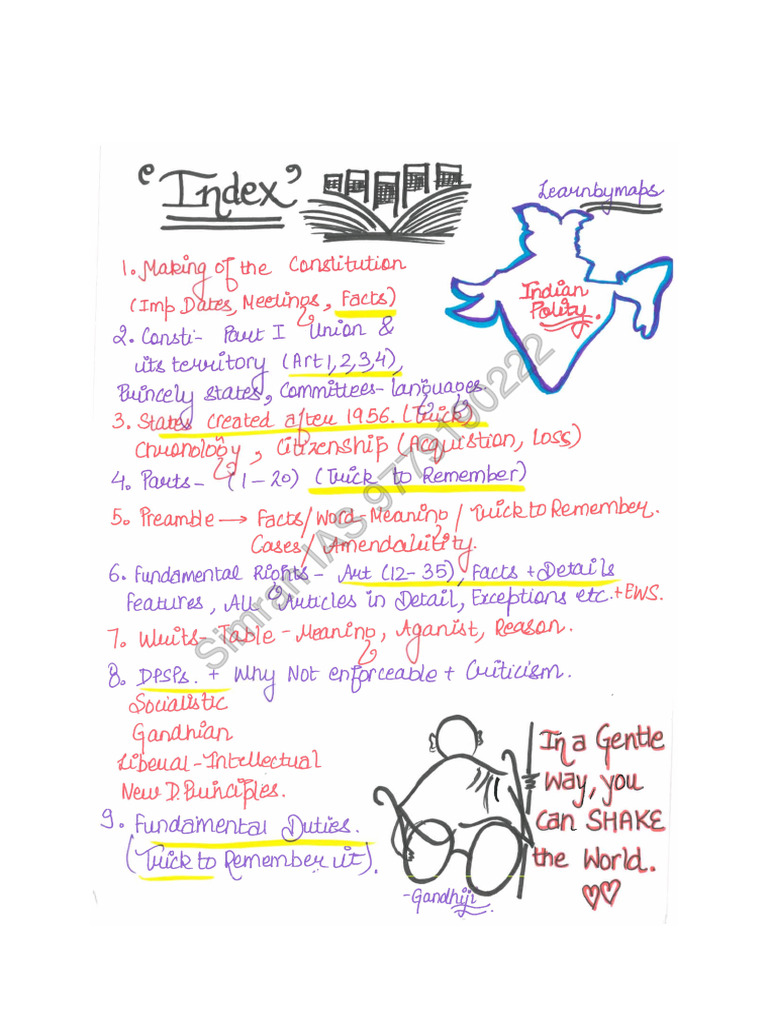 'Index'
Learnbymaps
Indian
Polity.
1. Making of the Constitution
(Imp Dates, Meetings, Facts)
2. Consti- Part I Union &
its territory (Art 1,2,3,4),
Princely states, Committees-languages.
3. States created after 1956. (Trick)
Chronology, Citizenship (Acquistion, Loss)
4. Parts- (1-20) (Trick to Remember)
5. Preamble → Facts/Word-Meaning/Trick to Remember.
Cases/Amendability.
6. Fundamental Rights- Art (12-35), Facts + Details
Features, All Articles in Detail, Exceptions etc. + EWS.
7. Writs-Table-Meaning, Aganist, Reason.
8. DPSPs. + Why Not enforceable + Criticism.
Socialistic
Gandhian
Liberal-Intellectual
New D.Principles.
9. Fundamental Duties.
(Trick to Remember it).
In a Gentle
Way, you
can SHAKE
the World.
-Gandhiji
Simran IAS 9779190222